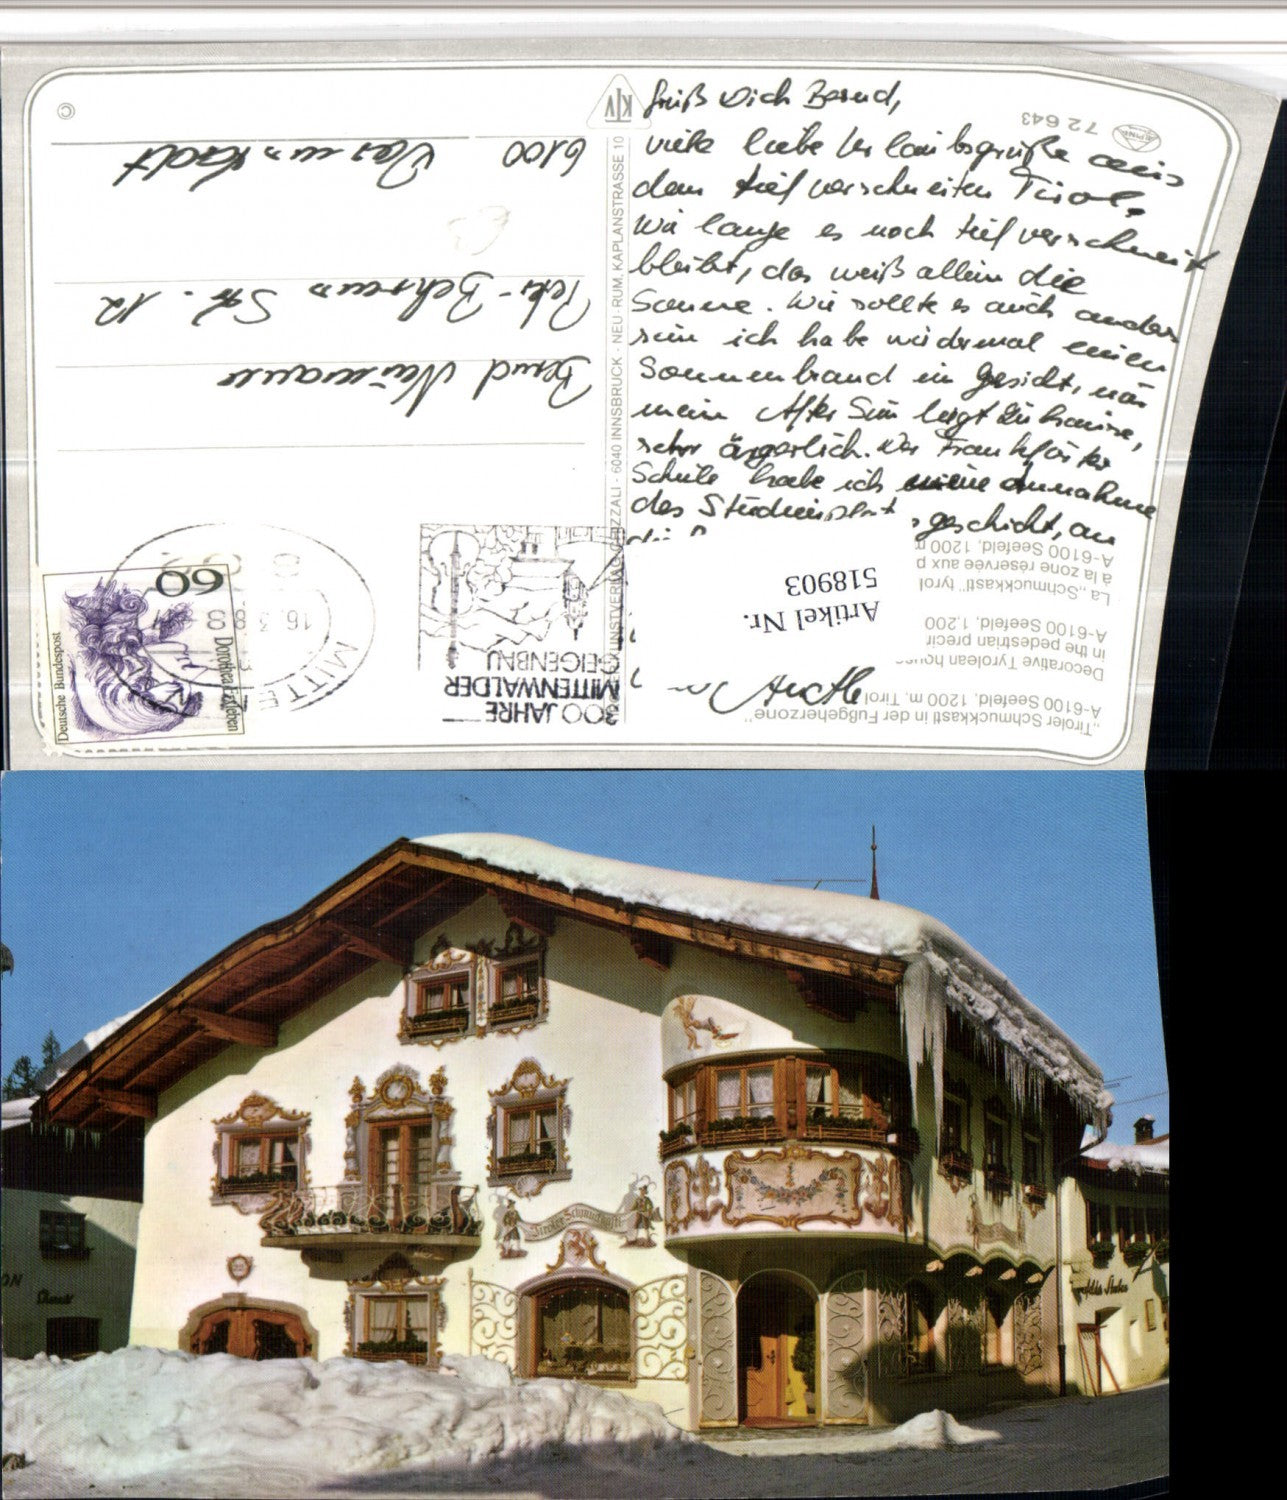 Grüß Dich Bernd,
viele liebe Urlaubsgrüße aus
dem tief verschneiten Tirol.
Wie lange es noch tief verschneit
bleibt, das weiß allein die
Sonne. Wie sollte es auch anders
sein ich habe wiedermal einen
Sonnenbrand im Gesicht, nur
mein After Sun liegt zuhause,
sehr ärgerlich. Der Frankfurter
Schule habe ich meine Annahme
des Studienplat geschickt, an
72 643
ALPINA
©
KIV
6100 Darmstadt
Peter-Behrens Str. 12
Bernd
KUNSTVERLAG GEZZALI - 6040 INNSBRUCK - NEU-RUM, KAPLANSTRASSE 10
Artikel Nr.
518903
„Tiroler Schmuckkastl in der Fußgeherzone“
A-6100 Seefeld, 1200 m, Tirol
Decorative Tyrolean house
in the pedestrian precin
A-6100 Seefeld, 1.200
La „Schmuckkastl“ tyrol
à la zone réservée aux p
A-6100 Seefeld, 1200 m
300 JAHRE
MITTENWALDER
GEIGENBAU
MITTE
16.3.8
60
Deutsche Bundespost
Dorothea Erxleben
Tiroler Schmuckkastl